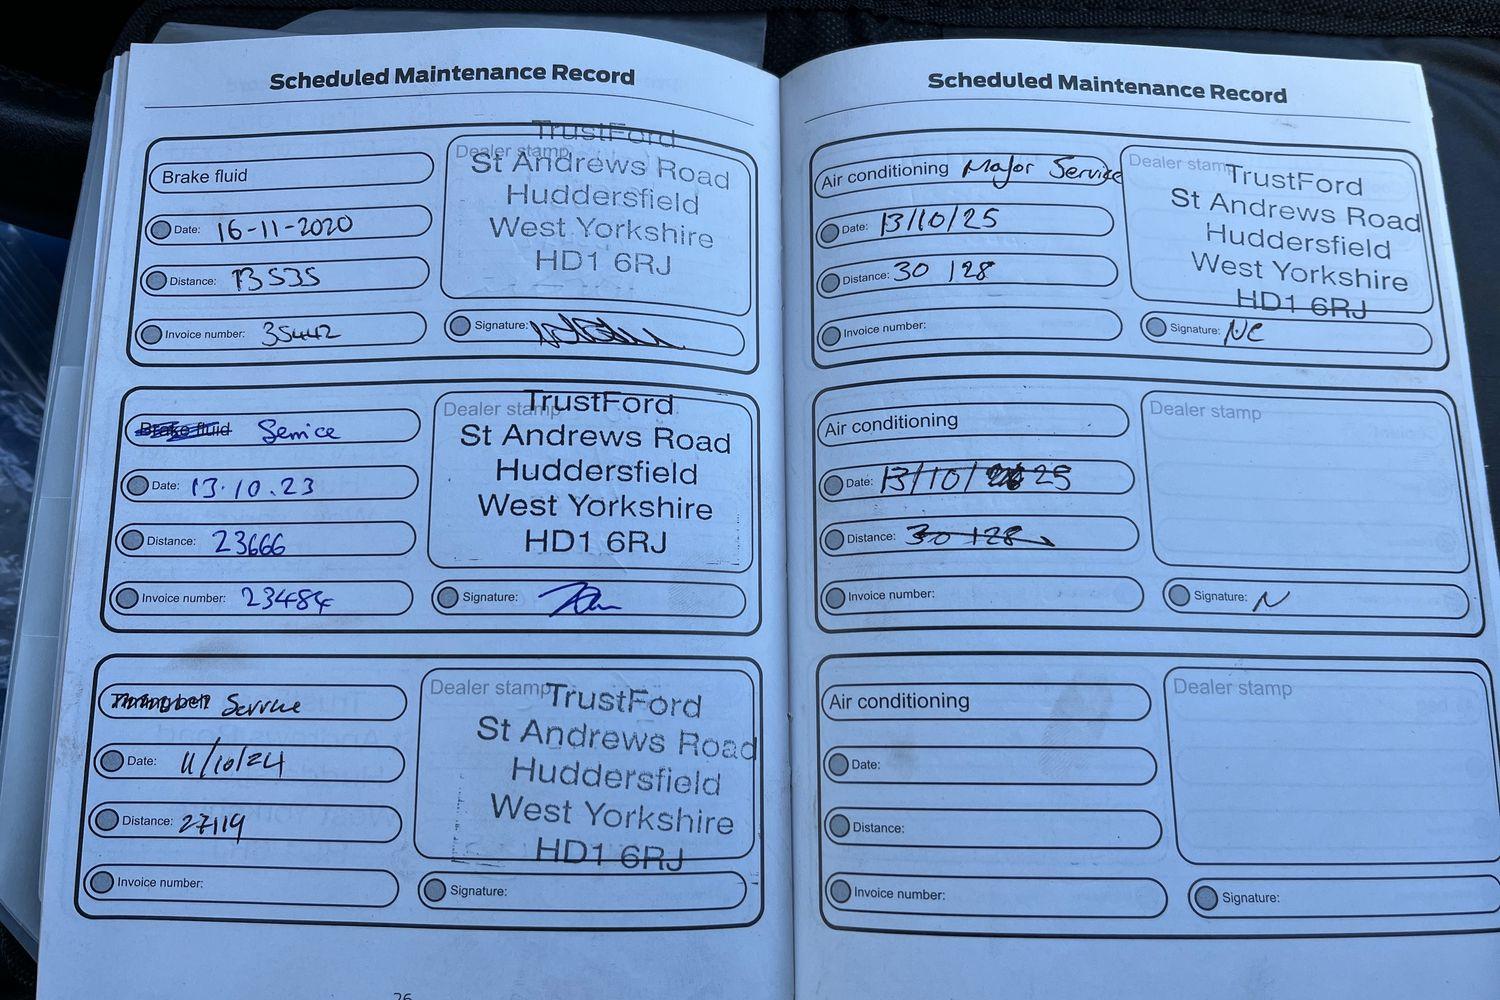 Scheduled Maintenance Record
Brake fluid
Date: 16-11-2020
Distance: 13535
Invoice number: 35442
Dealer stamp
TrustFord
St Andrews Road
Huddersfield
West Yorkshire
HD1 6RJ
Signature:
Brake fluid Service
Date: 13.10.23
Distance: 23666
Invoice number: 23484
Dealer stamp
TrustFord
St Andrews Road
Huddersfield
West Yorkshire
HD1 6RJ
Signature:
Timing belt Service
Date: 11/10/24
Distance: 27119
Invoice number:
Dealer stamp
TrustFord
St Andrews Road
Huddersfield
West Yorkshire
HD1 6RJ
Signature:
26
Scheduled Maintenance Record
Air conditioning Major Service
Date: 13/10/25
Distance: 30 128
Invoice number:
Dealer stamp
TrustFord
St Andrews Road
Huddersfield
West Yorkshire
HD1 6RJ
Signature: NC
Air conditioning
Date: 13/10/ 25
Distance: 30 128
Invoice number:
Dealer stamp
Signature: N
Air conditioning
Date:
Distance:
Invoice number:
Dealer stamp
Signature: